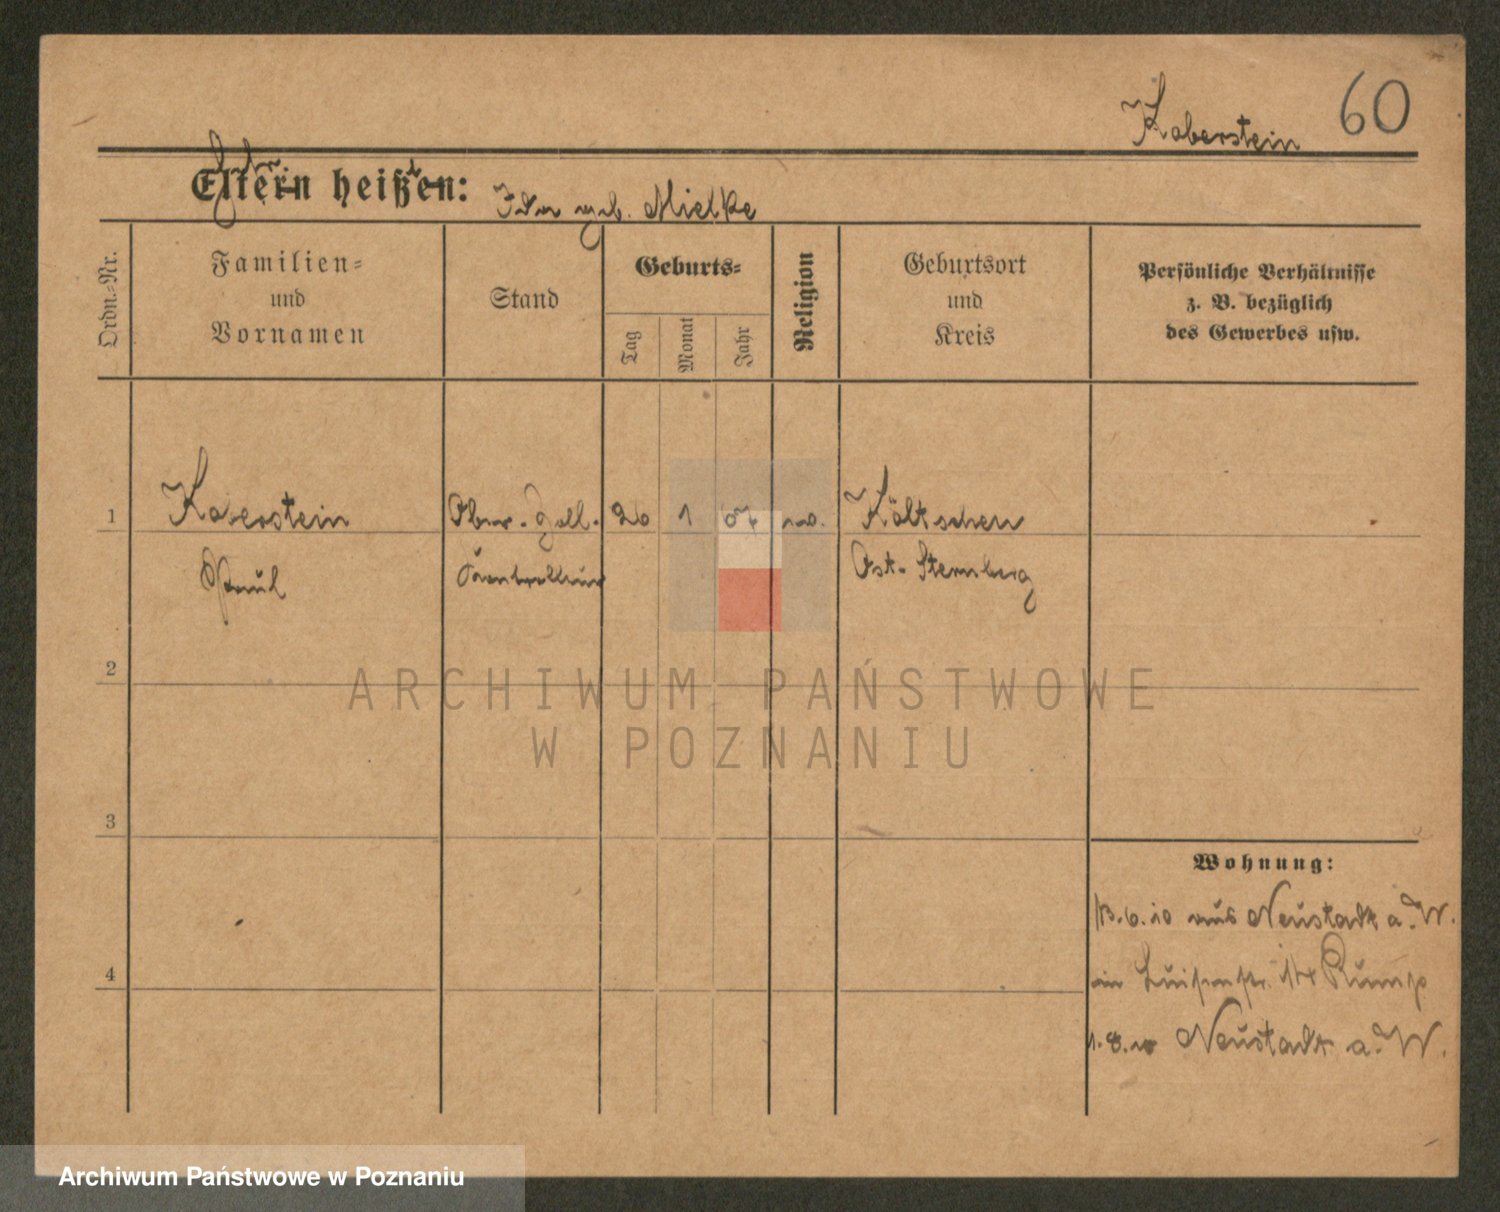 60
Koberstein
Eltern heißen:
Ida geb. Mielke
Ordn.=Nr.
Familien=
und
Vornamen
Stand
Geburts=
Tag
Monat
Jahr
Religion
Geburtsort
und
Kreis
Persönliche Verhältnisse
z. B. bezüglich
des Gewerbes usw.
1
Koberstein
Ober-Zoll-
20
1
Költschen
Paul
Ost-Sternberg
2
ARCHIWUM PAŃSTWOWE
W POZNANIU
3
Wohnung:
13.6.10 aus Neustadt a. W.
4
Luisenstr. Rump
1.8. Neustadt a. W.
Archiwum Państwowe w Poznaniu